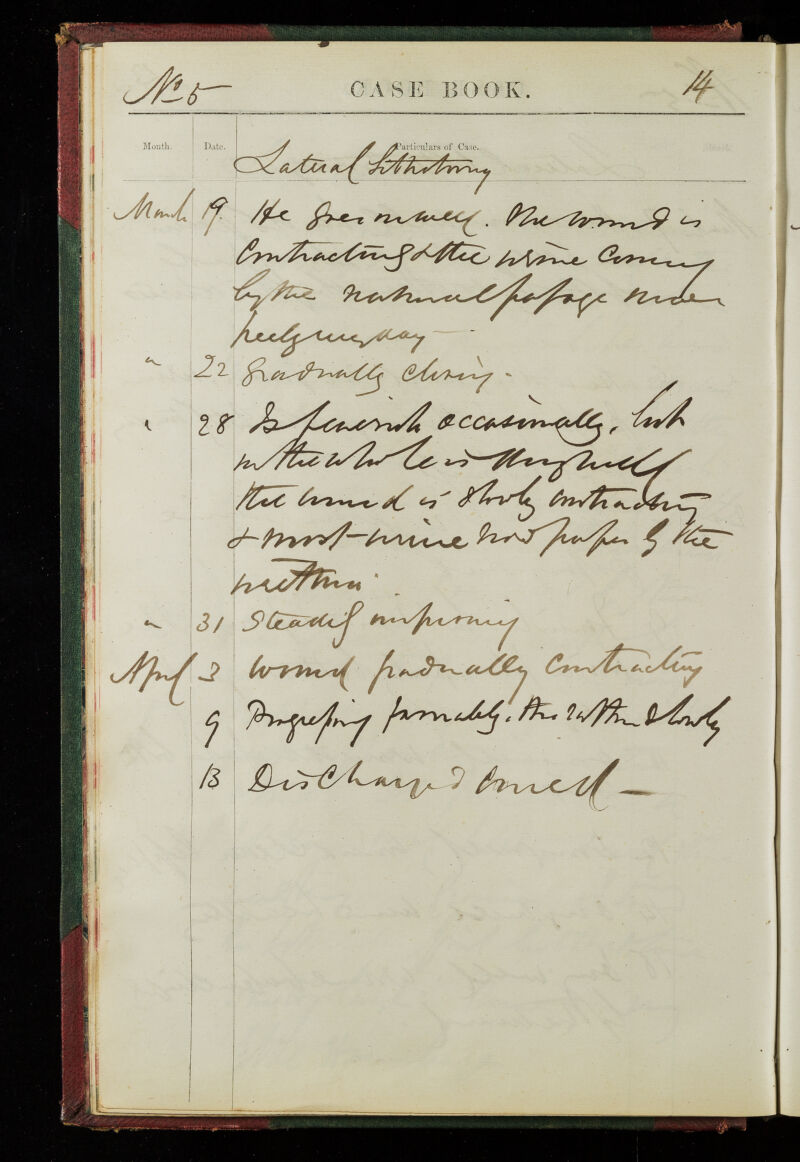 No 5 CASE BOOK. 14
Month. Date. Particulars of Case.
Lateral Lithotomy
March 19. He goes on well. The wound is
contracting & the urine coming
by the natural passage more
freely every day —
" 22 Gradually closing.
" 28 Is feverish occasionally, but
on the whole is doing well
the wound is slowly contracting
& most urine now passes by the
urethra.
" 31 Steadily improving
April 3 wound gradually contracting
9 Progressing favourably, tho' rather slowly
13 Discharged cured —